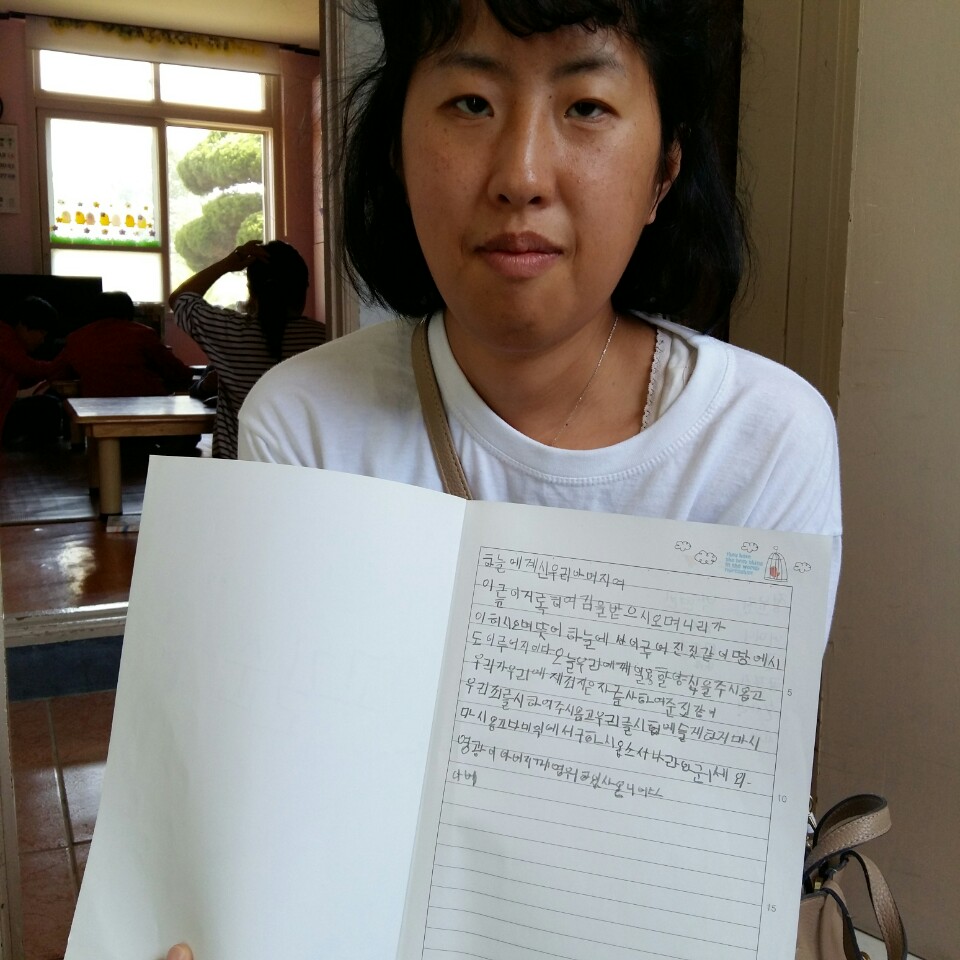 하늘에계신우리아버지여
이름이거룩히여김을받으시오며나라가
이하시오며뜻이하늘에서이루어진것같이땅에서
도이루어지이다오늘우리에께일용할양식을주시옵고
우리가우리에게죄지은자를사하여준것같이
우리죄를사하여주시옵고우리를시험에들게하지마시
마시옵고다만악에서구하시옵소서나라와권세와
영광이아버지께영원히있사옵나이다
아멘
5
10
15